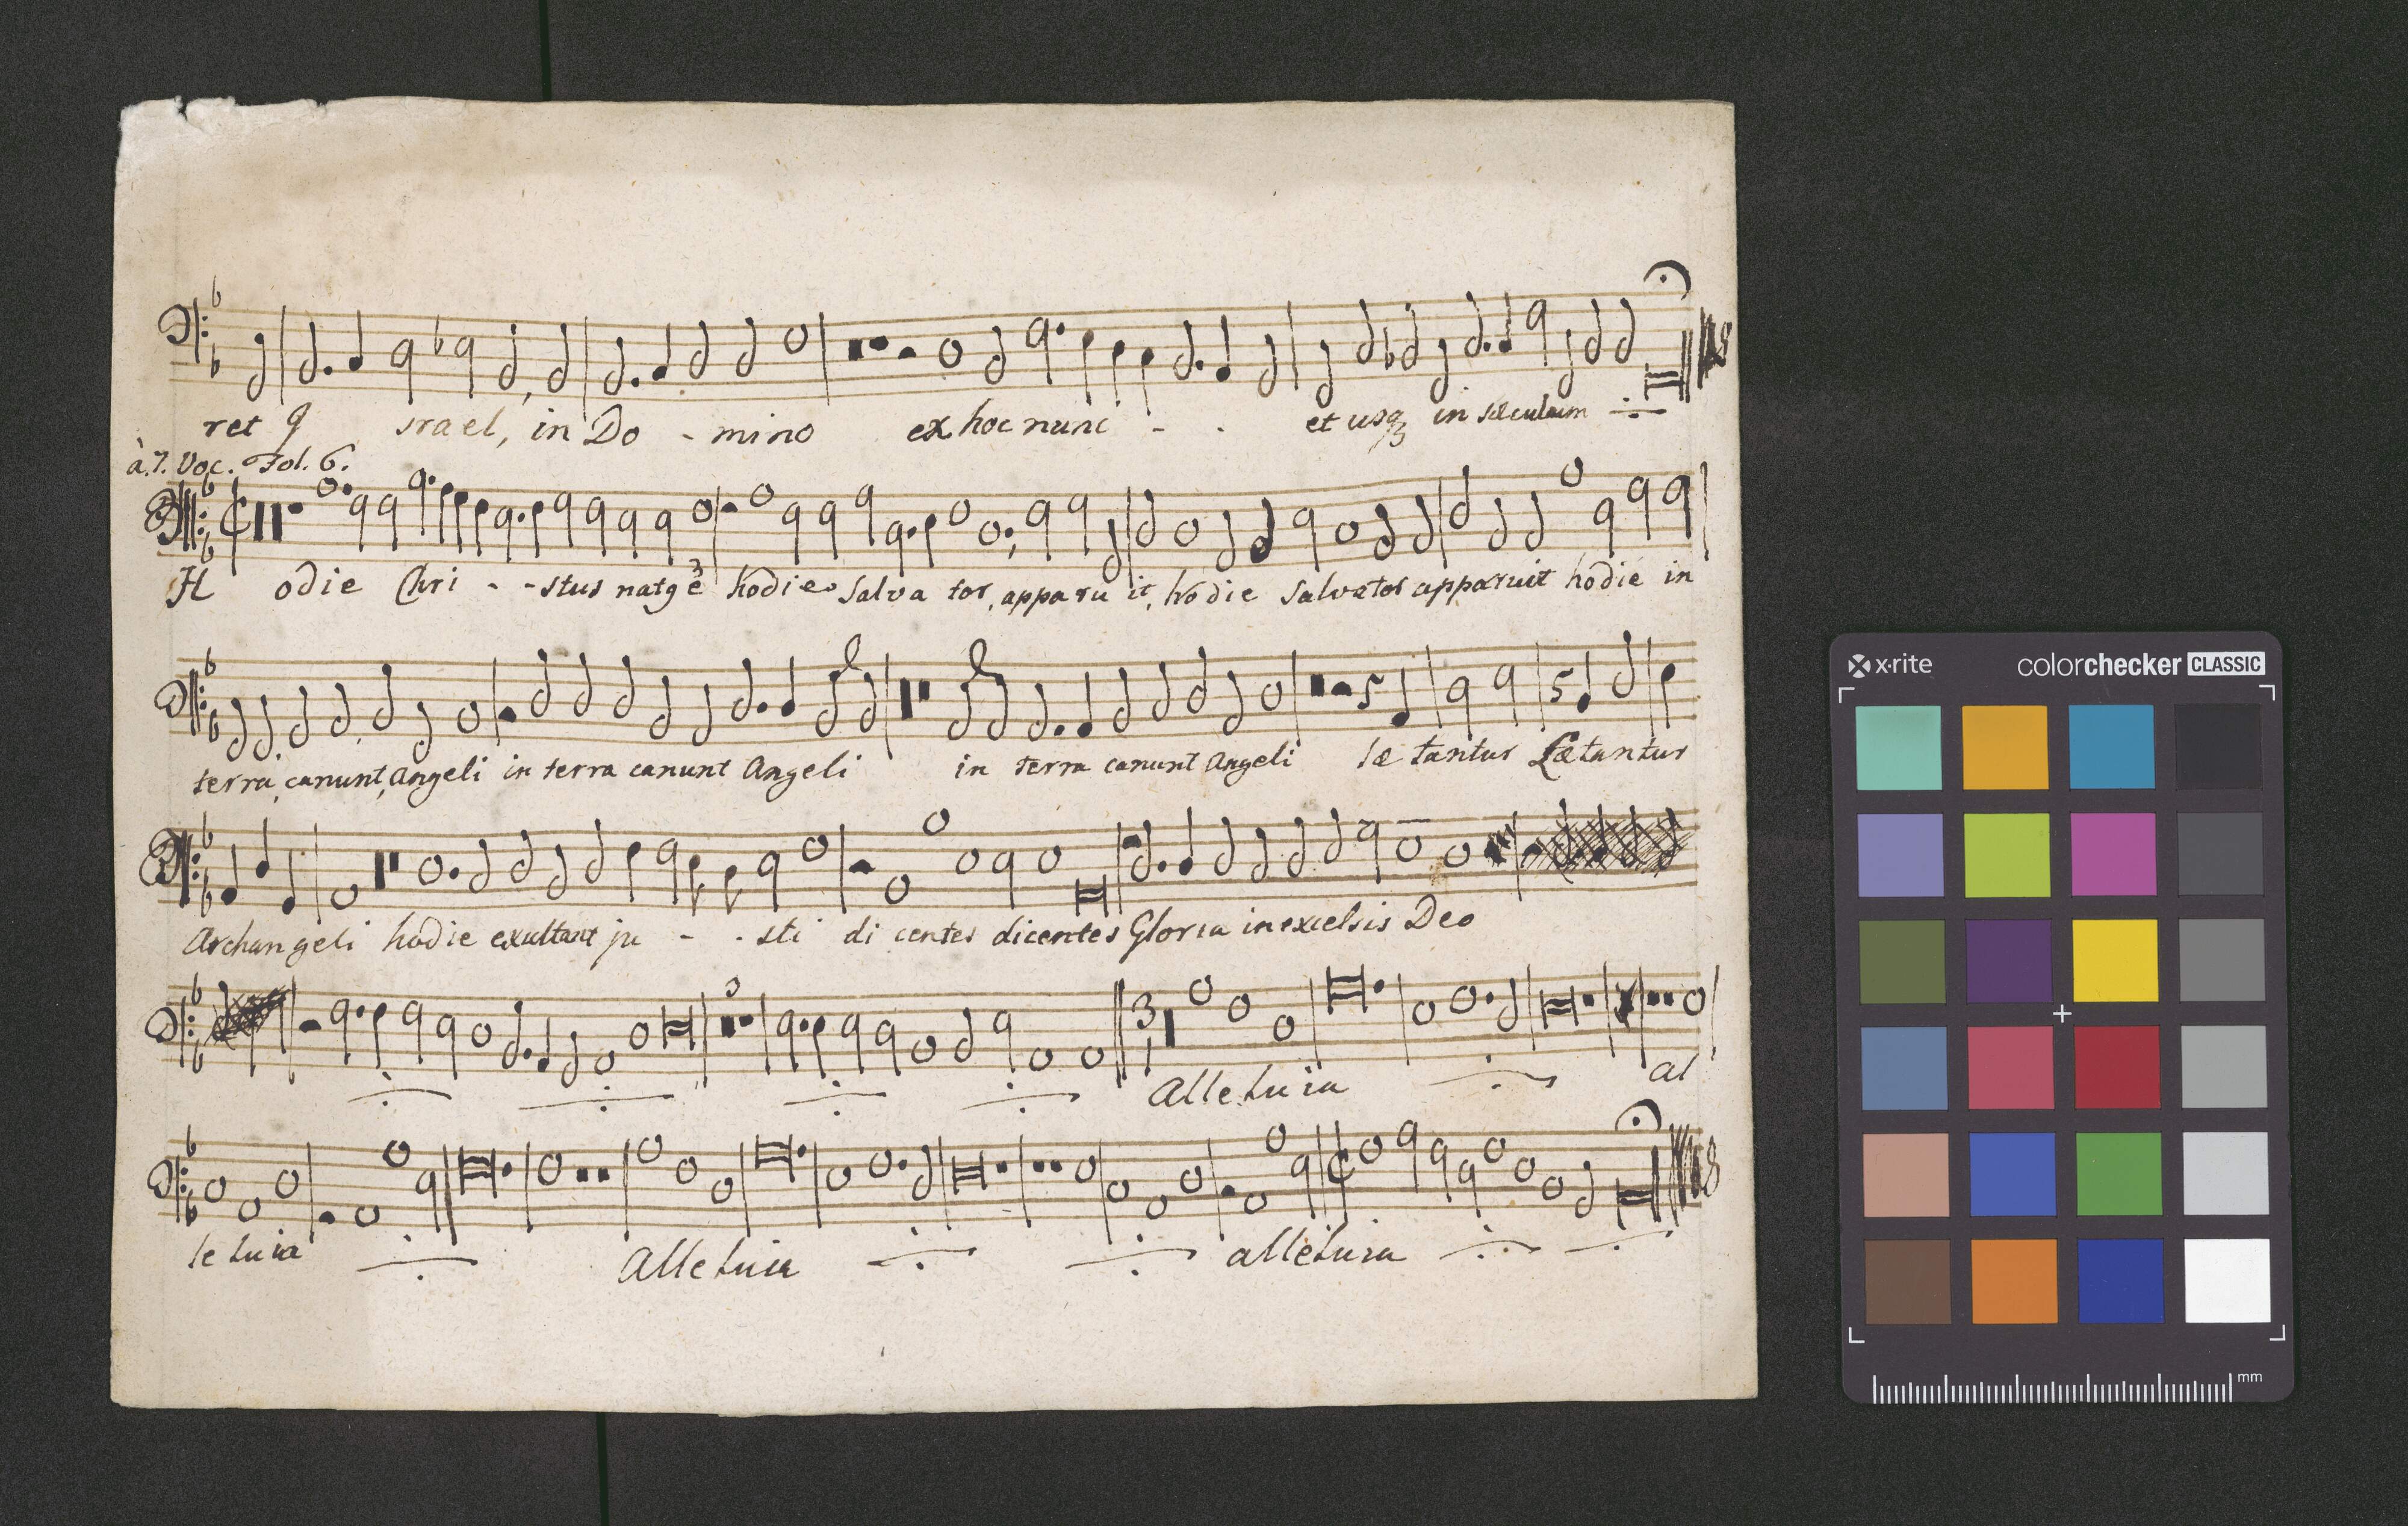 ret Israel, in Do - mino ex hoc nunc - - et usq3 in sæculum
à.7. Voc. Fol. 6.
Hodie Chri - - stus nat9 ē hodie Salva tor, apparu it, hodie Salvator apparuit hodie in
terra, canunt, Angeli in terra canunt Angeli in terra canunt Angeli læ tantur Lætantur
Archangeli hodie exultant ju - - sti di centes dicentes Gloria in excelsis Deo
3
3
1
Alleluia al
leluia Alleluia alleluia
x-rite colorchecker CLASSIC
mm